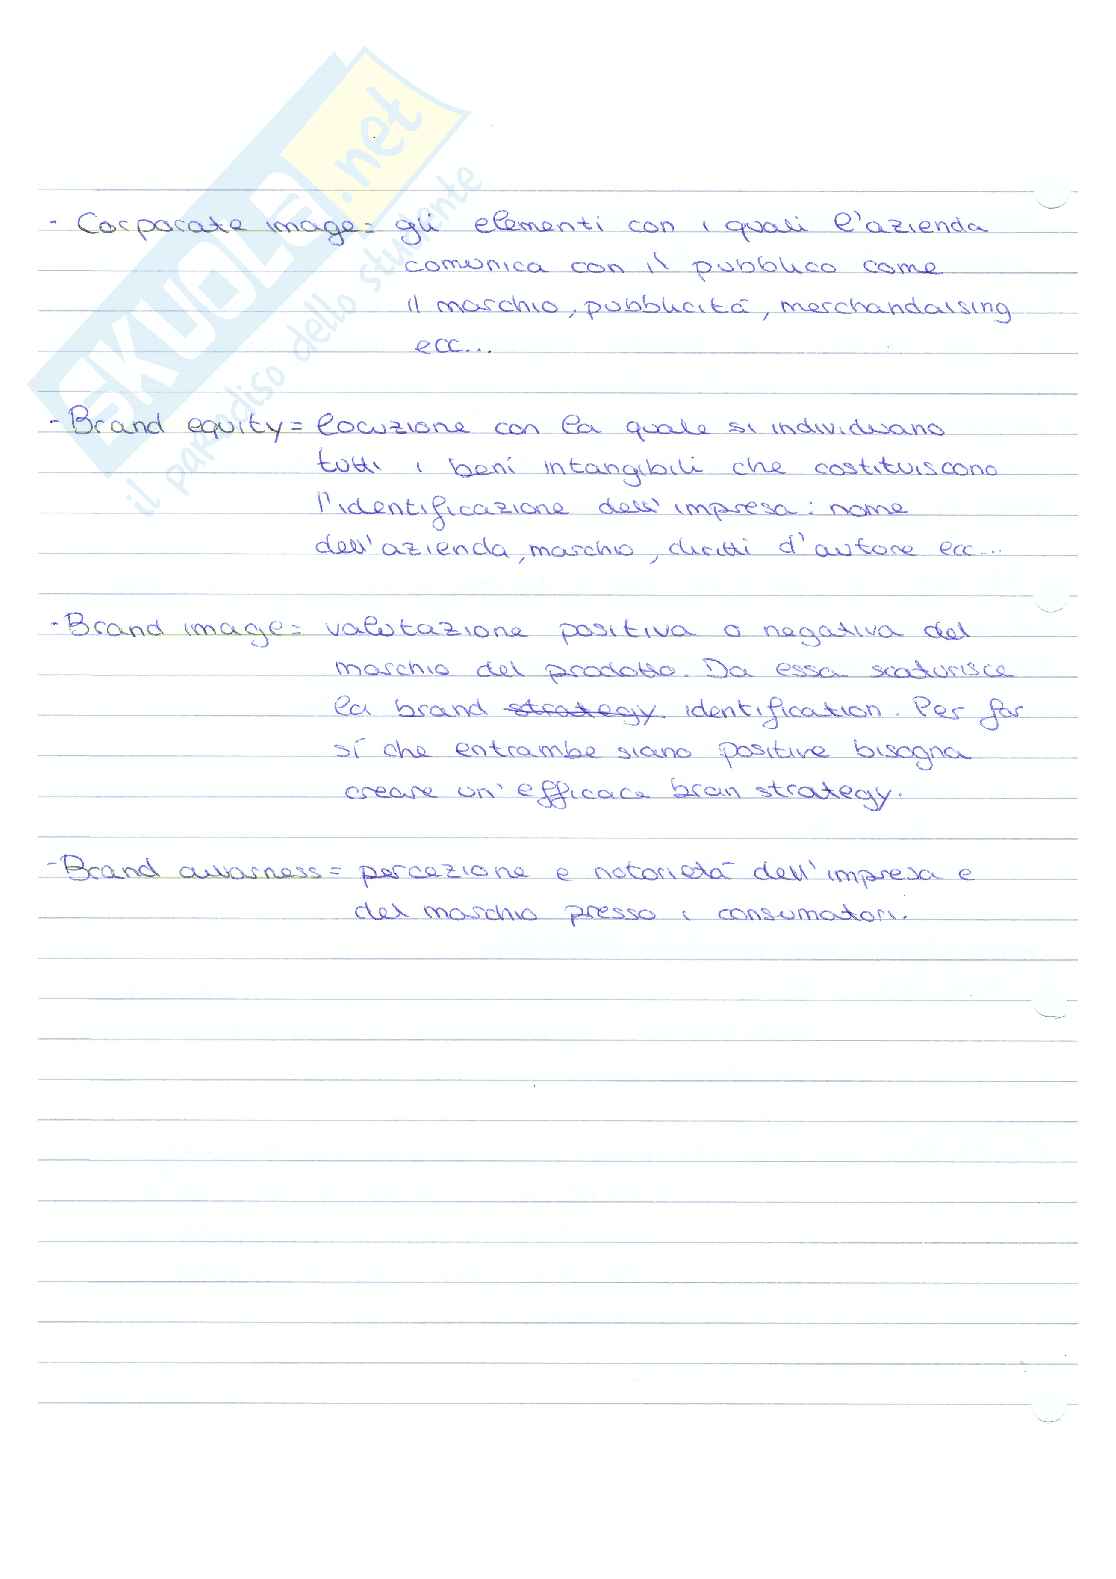 SKUOLA.net
il paradiso dello studente
- Corporate image = gli elementi con i quali l'azienda
comunica con il pubblico come
il marchio, pubblicità, merchandaising
ecc...
- Brand equity = locuzione con la quale si individuano
tutti i beni intangibili che costituiscono
l'identificazione dell'impresa: nome
dell'azienda, marchio, diritti d'autore ecc...
- Brand image = valutazione positiva o negativa del
marchio del prodotto. Da essa scaturisce
la brand strategy identification. Per far
sí che entrambe siano positive bisogna
creare un'efficace bran strategy.
- Brand awarness = percezione e notorietà dell'impresa e
del marchio presso i consumatori.